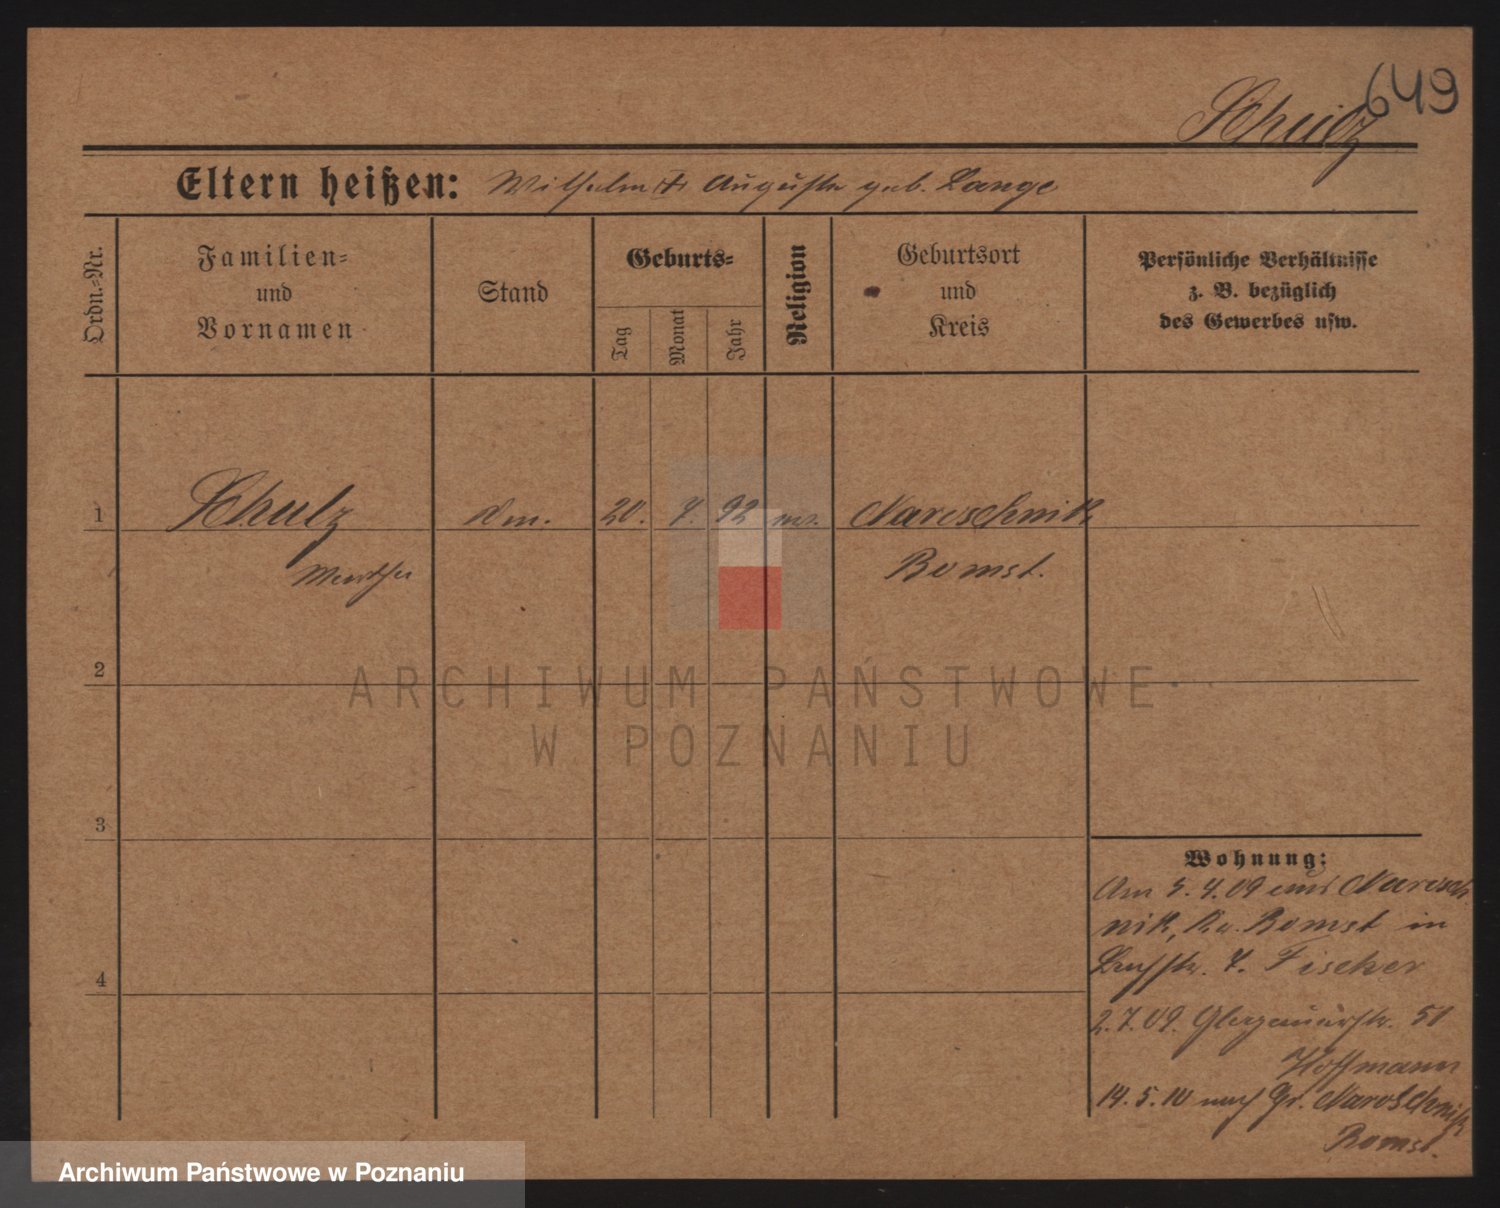 649
Schulz
Eltern heißen: Wilhelm u. Auguste geb. Lange
Ordn.-Nr.
Familien-
und
Vornamen
Stand
Geburts-
Tag
Monat
Jahr
Religion
Geburtsort
und
Kreis
Persönliche Verhältnisse
z. B. bezüglich
des Gewerbes usw.
1 Schulz 20. 92 Naroschnik
Martha Bomst.
2
ARCHIWUM PAŃSTWOWE
W POZNANIU
3
Wohnung:
Am 5. 4. 09 aus Narosch
nik, Kr. Bomst in
7. Fischer
4
2. 7. 09. Glogauerstr. 51
Hoffmann
14. 5. 10 nach Gr. Naroschnik
Bomst.
Archiwum Państwowe w Poznaniu